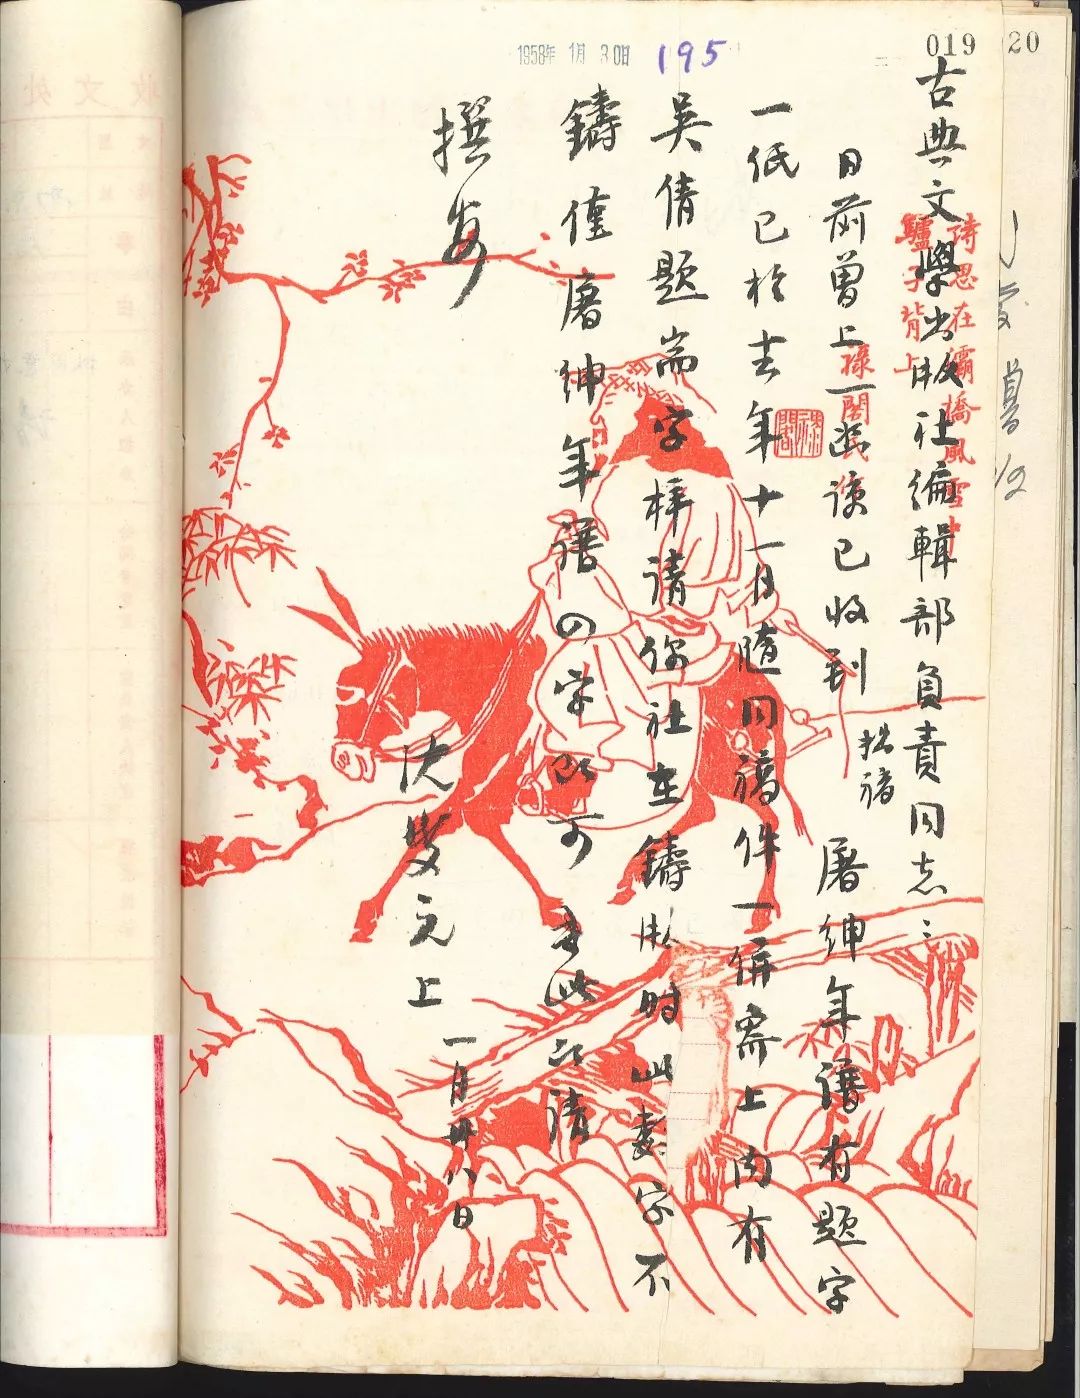 019
20
1958年 1月 30日
195
古典文學出版社編輯部負責同志:
日前曾上一函諒已收到 拙稿 屠紳年譜有題字
一纸已於去年十一月随同稿件一併寄上内有
吴倩题耑字样请你社在鑄版时此數字不
鑄僅屠紳年譜四字即可 专此 请
撰安
沈燮元上
一月廿八日
詩思在灞橋風雪中
驢子背上
收文处